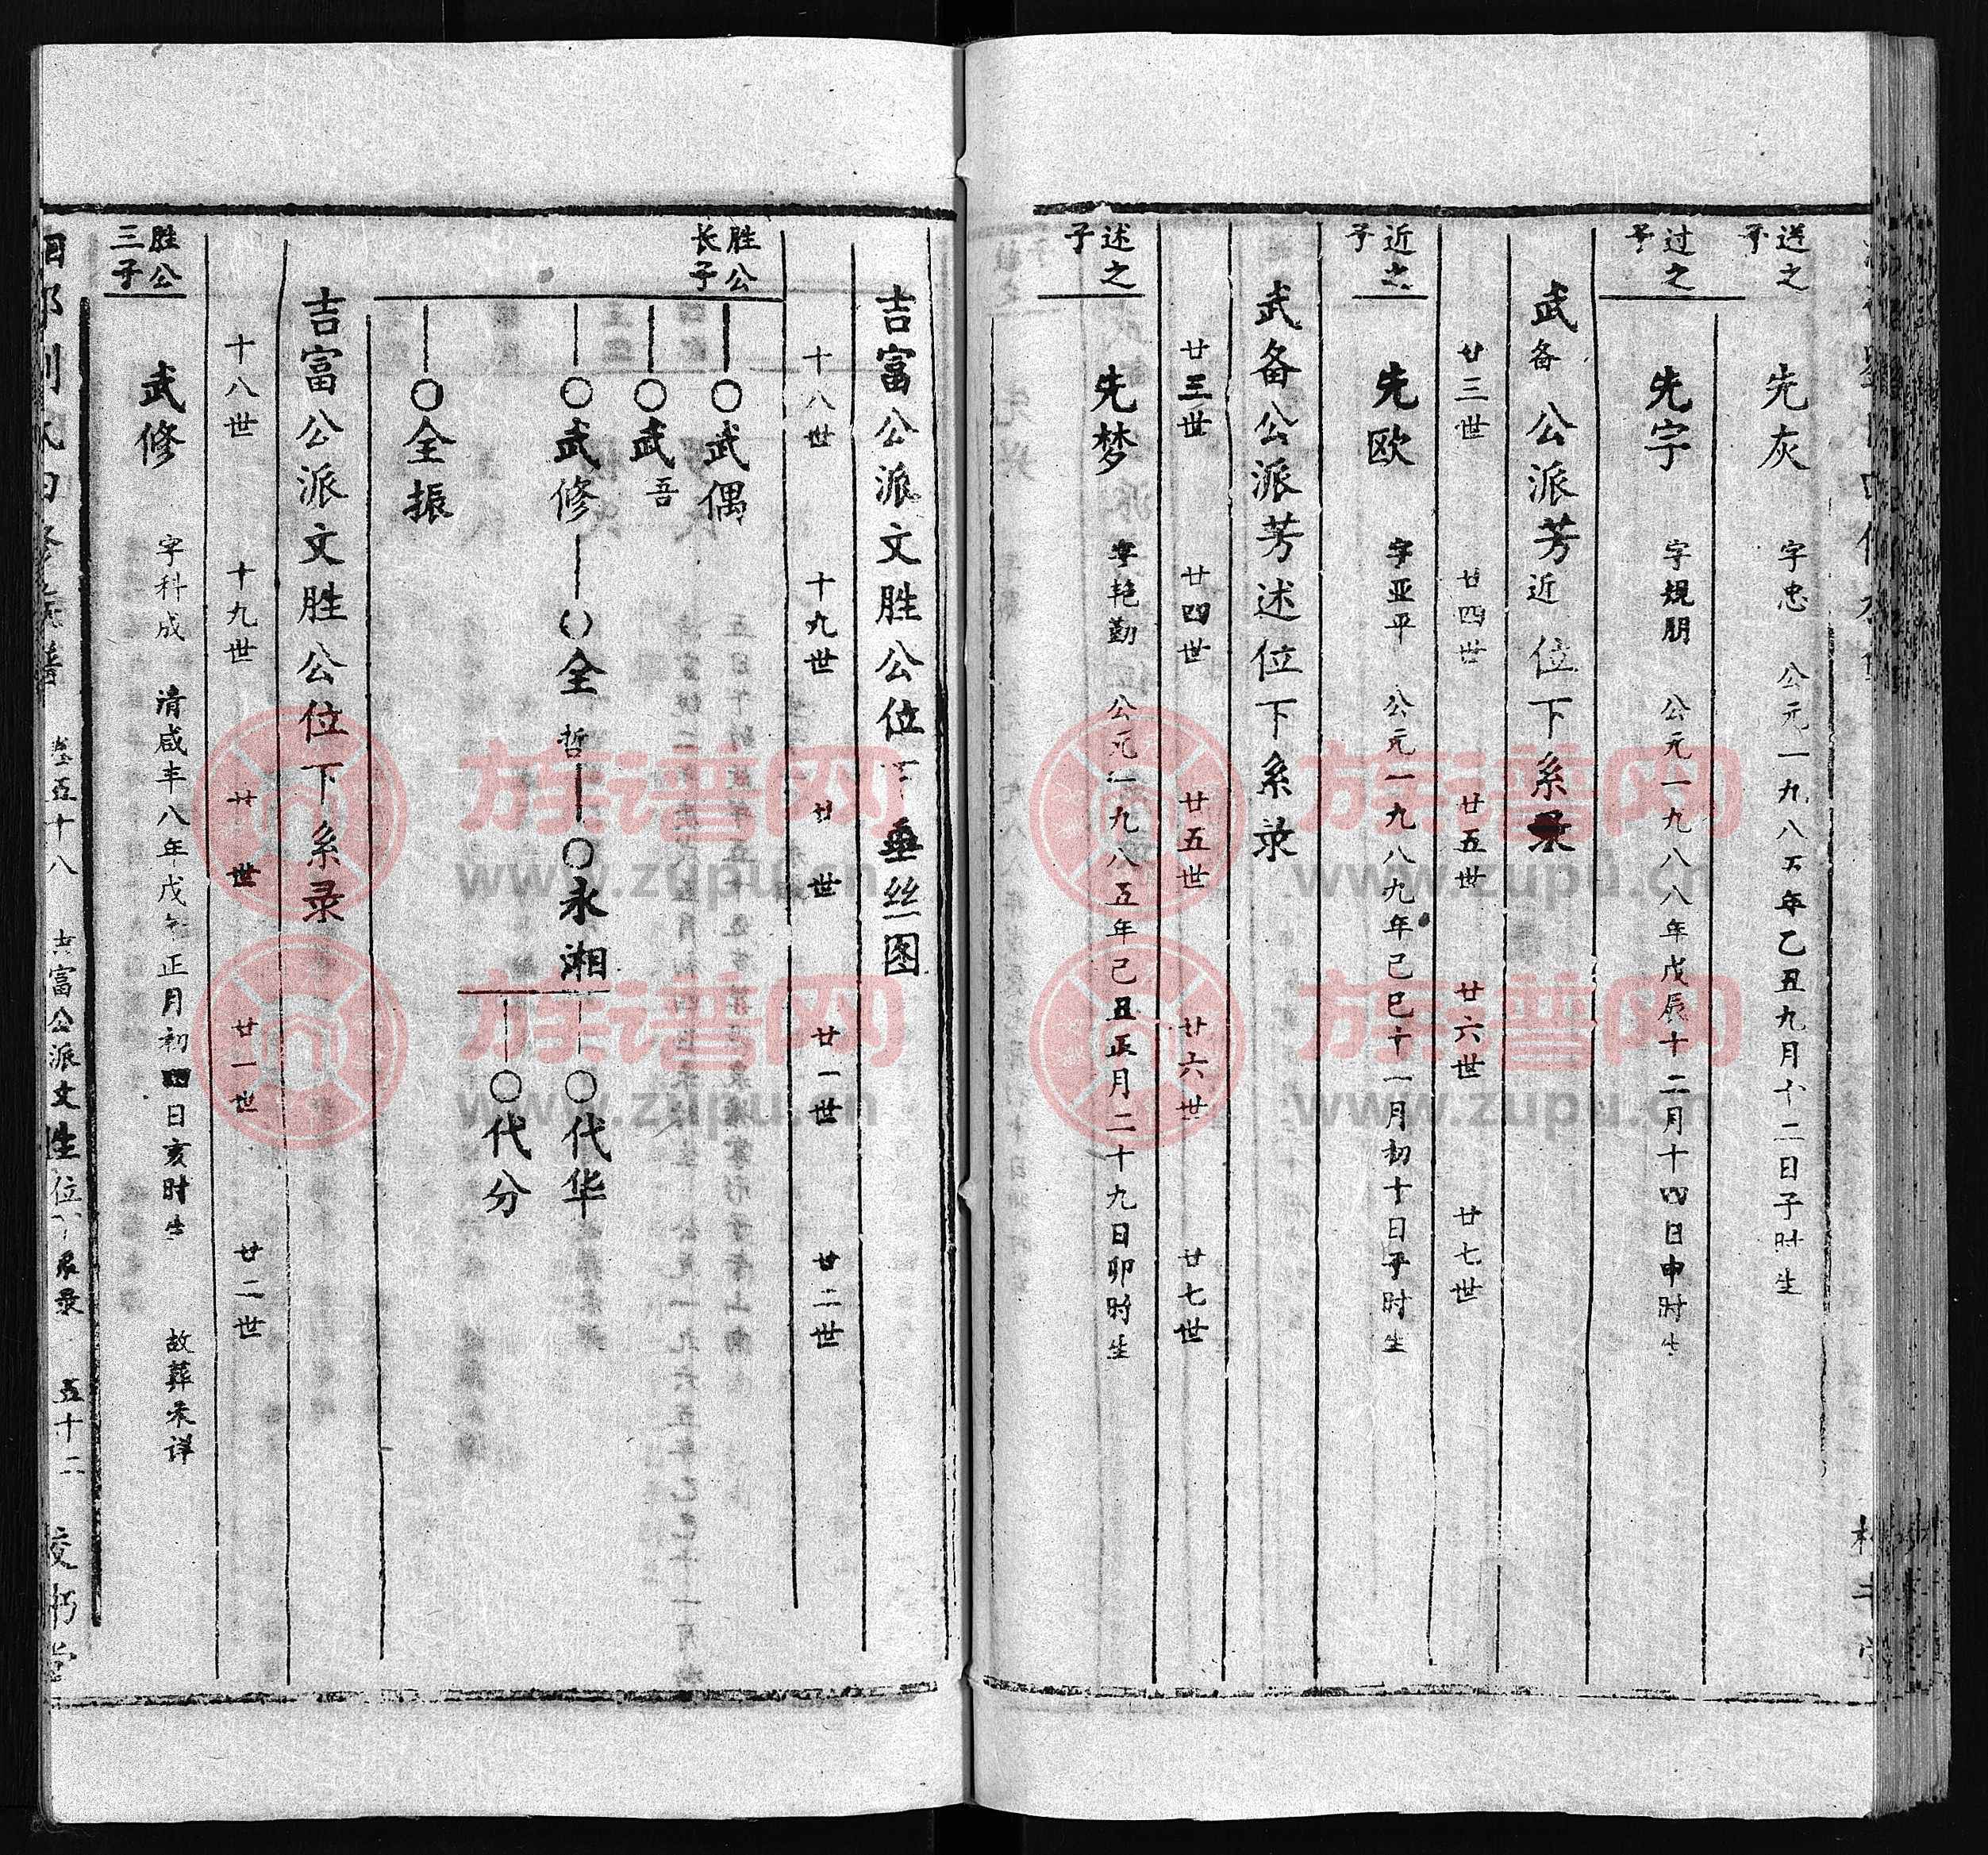 送之子
先灰 字忠 公元一九八五年乙丑九月十二日子时生
过之子
先宇 字规朋 公元一九八八年戊辰十二月十四日申时生
武备公派芳近位下系录
廿三世 廿四世 廿五世 廿六世 廿七世
近之子
先欧 字亚平 公元一九八九年己巳十一月初十日子时生
武备公派芳述位下系录
廿三世 廿四世 廿五世 廿六世 廿七世
述之子
先梦 字艳勤 公元一九八五年己丑正月二十九日卯时生
吉富公派文胜公位下垂丝图
十八世 十九世 廿世 廿一世 廿二世
胜公长子
○武偶
○武吾
○武修 ○全哲 ○永湘 ○代华
○代分
○全振
吉富公派文胜公位下系录
十八世 十九世 廿世 廿一世 廿二世
胜公三子
武修 字科成 清咸丰八年戊午正月初四日亥时生 故葬未详
卷五十八 吉富公派文胜位下系录 五十二
族谱网
www.zupu.cn
族谱网
www.zupu.cn
族谱网
www.zupu.cn
族谱网
www.zupu.cn